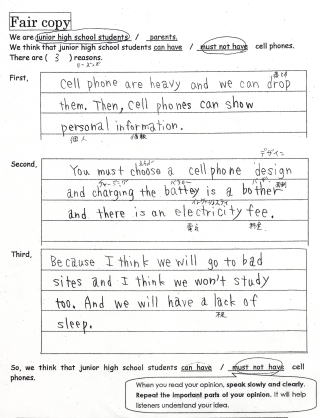 Fair copy
We are junior high school students / parents.
We think that junior high school students can have / must not have cell phones.
There are ( 3 ) reasons.
リーズンズ
First,
Cell phone are heavy and we can drop
落とす
them. Then, Cell phones can show
personal information.
個人 情報
Second,
デザイン
You must choose a cell phone design
and charging the battey is a bother
チャージング バッテリー
and there is an electricity fee.
電気 料金
Third,
Because I think we will go to bad
sites and I think we won't study
too. And we will have a lack of
不足
sleep.
So, we think that junior high school students can have / must not have cell
phones.
When you read your opinion, speak slowly and clearly.
Repeat the important parts of your opinion. It will help
listeners understand your idea.